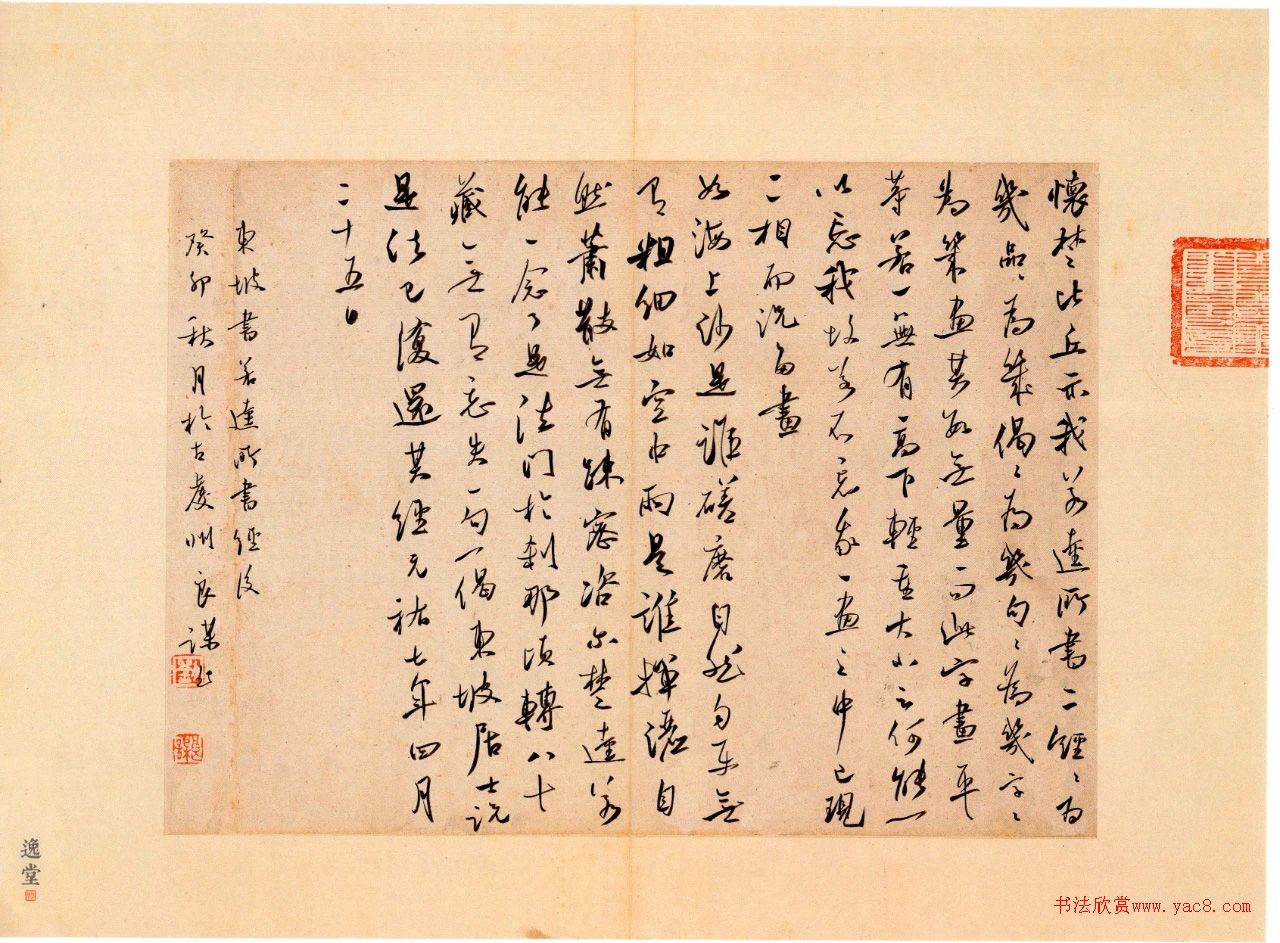 懷楚比丘示我若逵所書二經〻為
幾品〻為幾偈〻為幾句〻為幾字〻
為幾畫其數無量而此字畫平
等若一無有高下輕重大小云何能一
以忘我故若不忘我一畫之中已現
二相而況多畫
如海上沙是誰磋磨自然勻平無
有粗細如空中雨是誰揮灑自
然蕭散無有疎密咨爾楚逵若
能一念了是法門於剎那頃轉八十
藏無有忘失一句一偈東坡居士說
是法已復還其經元祐七年四月
二十五日
東坡書若逵所書經後
癸卯秋月於古處州良謀
逸堂
书法欣赏www.yac8.com